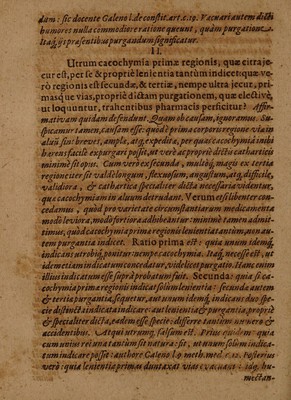 dum: sic docente Galeno l. de constit. art. c. 19. Vacuari autem dicti
humores nulla commodiore ratione queunt, quàm purgatione.
Itaq; his præsentibus purgandum significatur.
II.
Utrum cacochymia primæ regionis, quæ citra je-
cur est, per se & propriè lenientia tantùm indicet: quæ ve-
rò regionis est secundæ, & tertiæ, nempe ultra jecur, pri-
masque vias, propriè dictam purgationem, quæ electivè,
ut loquuntur, trahentibus pharmacis perficitur? Affir-
mativam quidam defendunt. Quam ob causam, ignoramus. Su-
spicamur tamen, causam esse: quòd è prima corporis regione via in
alvũ sit: brevis, ampla, atq; expedita, per quã cacochymia inibi
hærens facilè expurgari possit, ut verè ac propriè dictis catharticis
minimè sit opus. Cum verò ex secunda, multóq; magis ex tertia
regione iter sit valdè longum, flexuosum, angustum, atq; difficile,
validiora, & cathartica specialiter dicta necessaria videntur,
quæ cacochymiam in alvum detrudant. Verùm etsi libenter con-
cedamus, quòd pro varietate circumstantiarum medicamenta
modò leviora, modò fortiora adhibeantur: minimè tamen admit-
timus, quòd cacochymia prima regionis lenientia tantùm, non au-
tem purgantia indicet. Ratio prima est: quia unum idemq;
indicans utrobiq; ponitur: nempe cacochymia. Itaq; necesse est, ut
idem etiam indicatum concedatur, videlicet purgatio. Hanc enim
illius indicatum esse suprà probatum fuit. Secunda: quia si ca-
cochymia prima regionis indicet solùm lenientia: secunda autem
& tertia purgantia, sequetur, aut unum idemq; indicans duo spe-
cie distincta indicata indicare: aut lenientia & purgantia, propriè
& specialiter dicta, eadem esse specie: differre tantùm numero &
accidentibus. Atqui utrumq; falsum est. Prius quidem: quia
cum unius rei una tantùm sit natura: sit, ut unum solum indica-
tum indicare possit: authore Galeno l. 9 meth. med. c. 12. Posterius
verò: quia lenientia primas duntaxat vias
mectan-